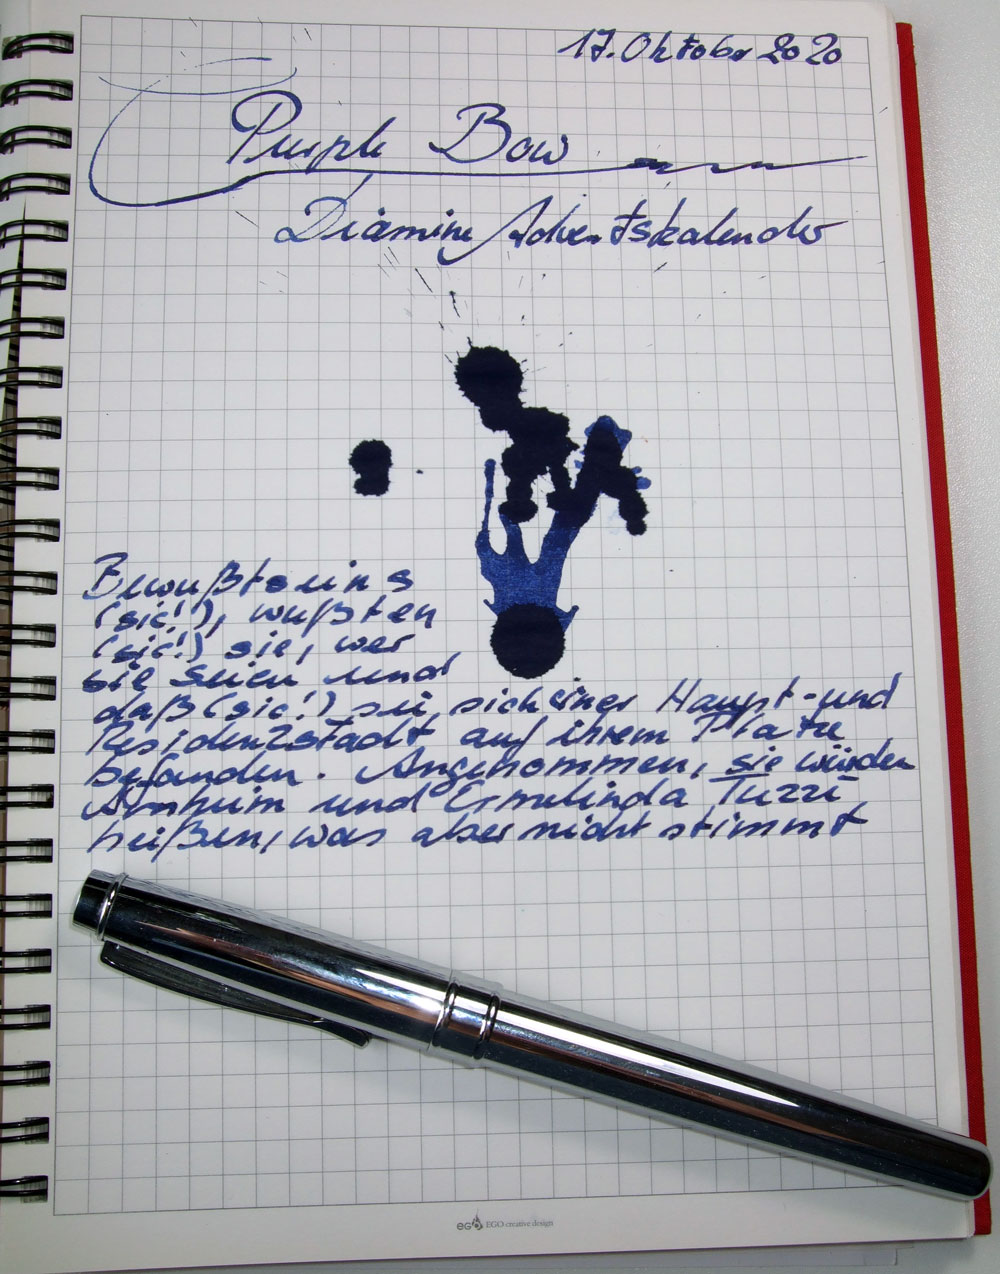 17. Oktober 2020
Purple Bow
Diamine Adventskalender
Bewußtseins
(sic!), wußten
(sic!) sie, wer
sie seien und
daß (sic!) sie sich einer Haupt- und
Residenzstadt auf ihrem Platze
befanden. Angenommen, sie würden
Arnheim und Ermelinda Tuzzi
heißen, was aber nicht stimmt
EGO EGO creative design